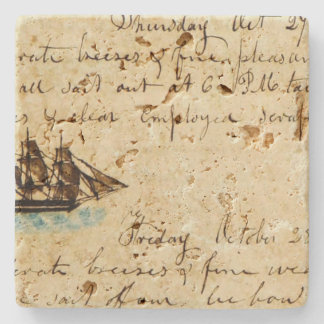 Thursday Oct 27
rate breezes & fine pleasan
all sail out at 6 P.M. tac
s & clear Employed scra
Friday October 28
erate breezes & fine wea
sail off our lee bow